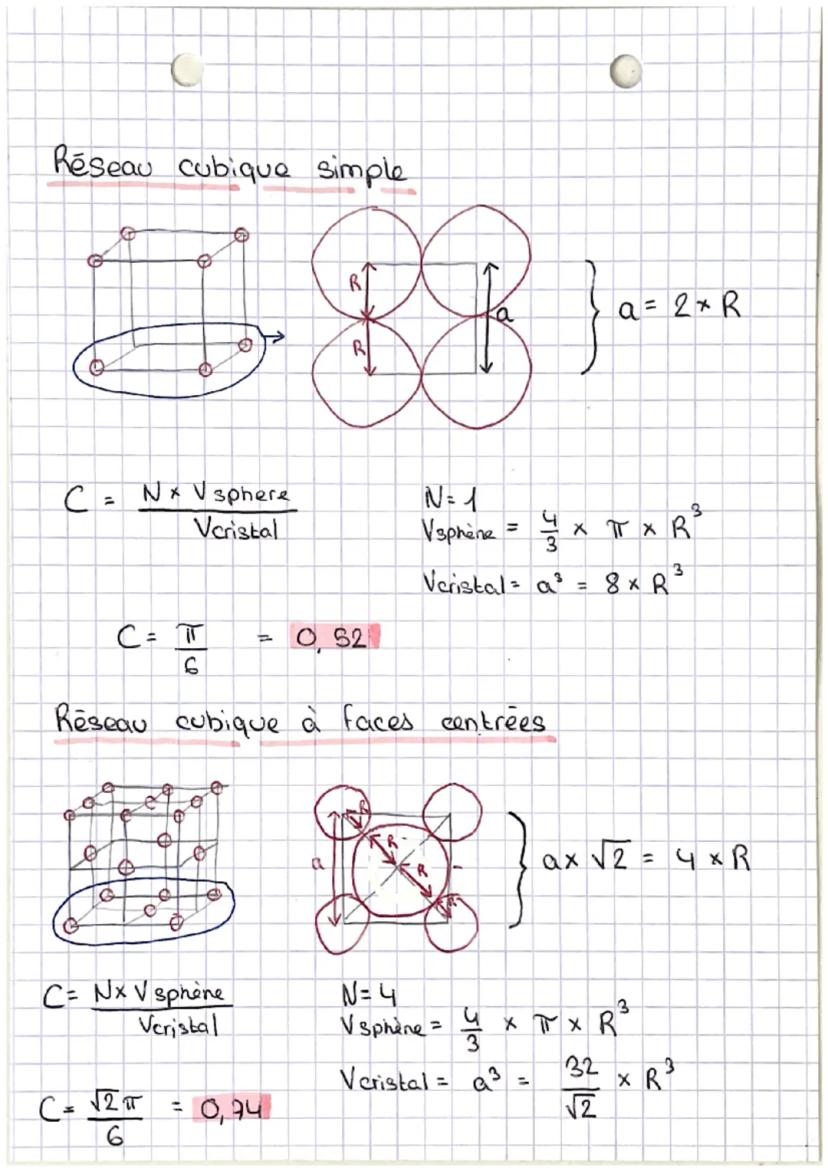 Réseau cubique simple
R
R
a
a = 2 × R
C = N × V sphere / Vcristal
N = 1
Vsphère = 4/3 × π × R³
Vcristal = a³ = 8 × R³
C = π/6 = 0,52
Réseau cubique à faces centrées
a
R
R
R
R
a × √2 = 4 × R
C = N × V sphère / Vcristal
N = 4
V sphère = 4/3 × π × R³
Vcristal = a³ = 32/√2 × R³
C = √2 π/6 = 0,74